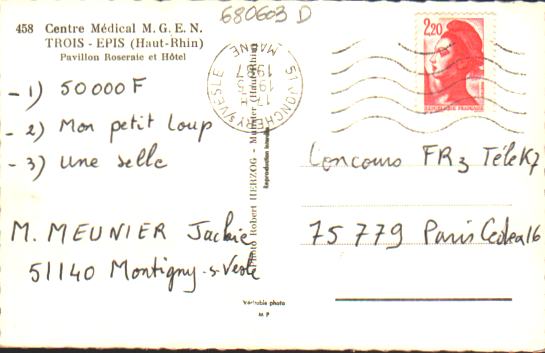 680603 D
458 Centre Médical M. G. E. N.
TROIS - EPIS (Haut-Rhin)
Pavillon Roseraie et Hôtel
- 1) 50000 F
- 2) Mon petit loup
- 3) Une selle
M. MEUNIER Jackie
51140 Montigny-s-Vesle
Photo Robert HERZOG - Munster (Haut-Rhin)
Reproduction interdite
Véritable photo
M P
51 JONCHERY S/VESLE
MARNE
1987
2,20
Concours FR3 TéleK7
75779 Paris Cedex 16